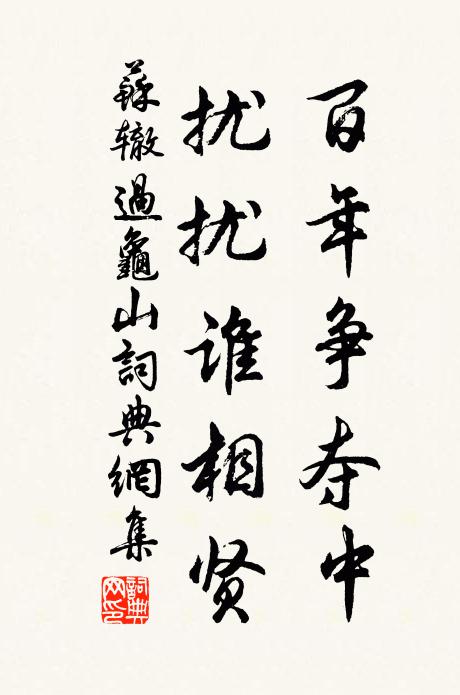 百年争夺中
扰扰谁相贤
蘇辙過龜山詞典網集
詞典网印